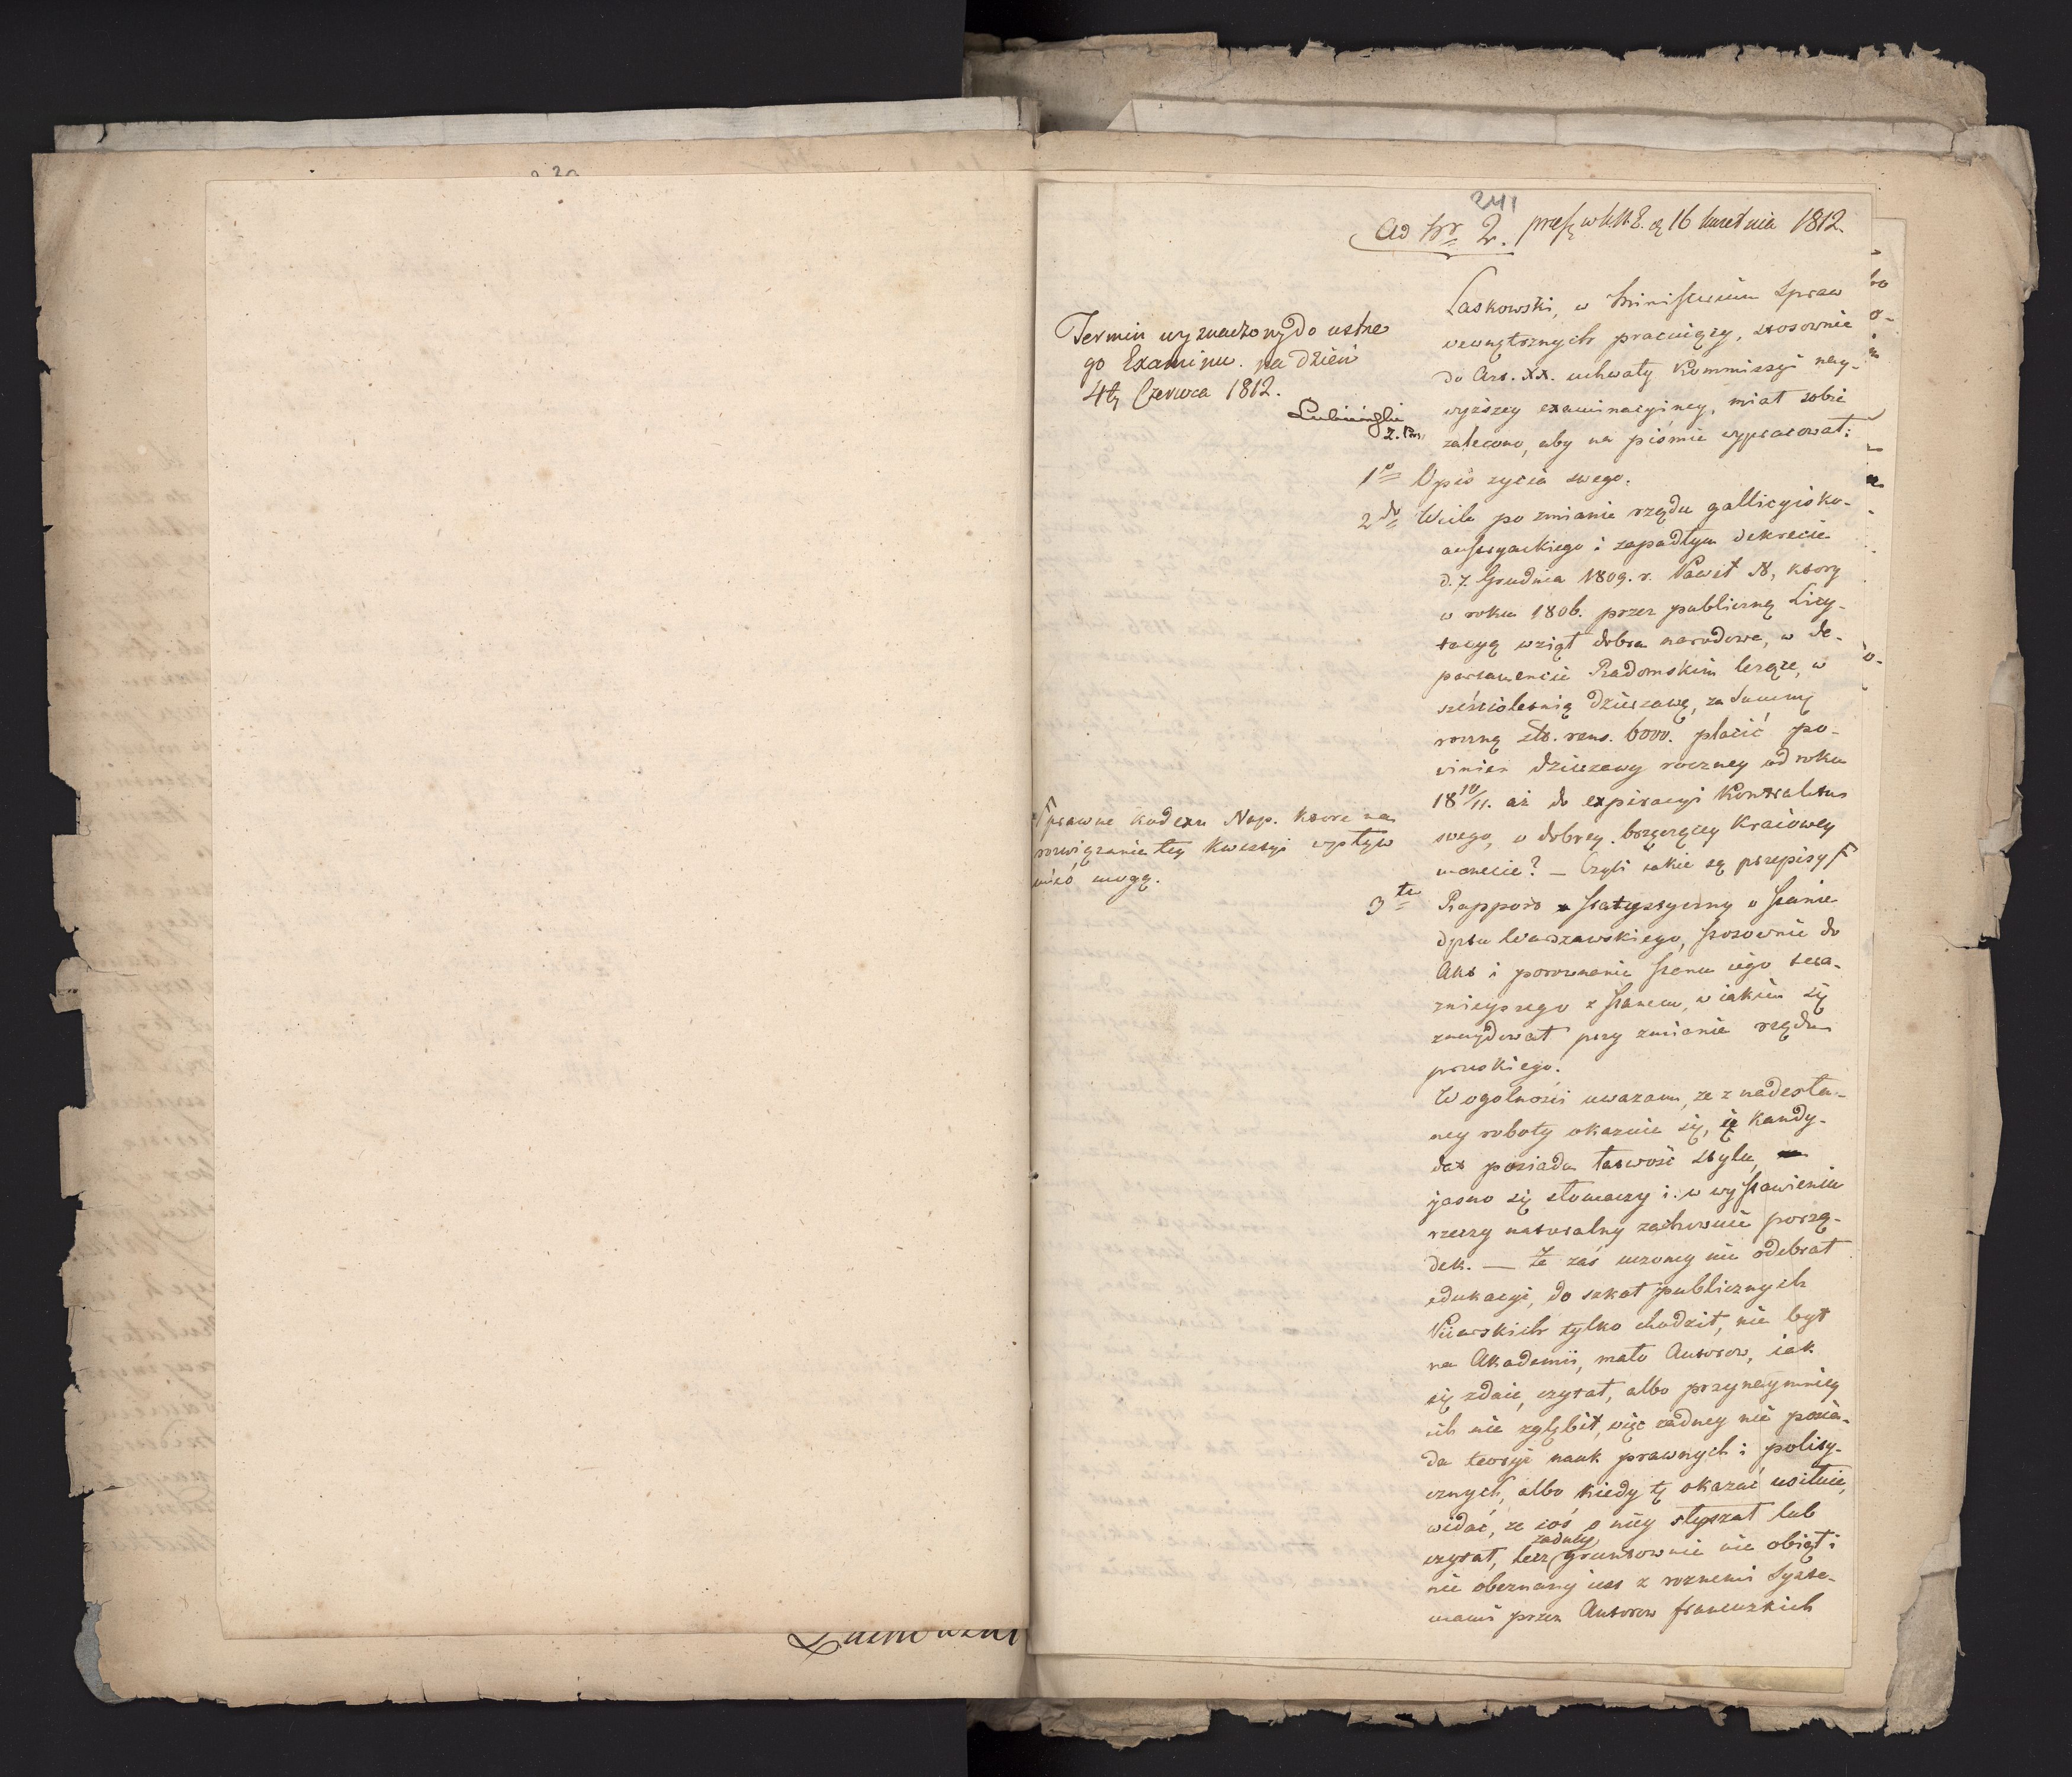 241
Ad Nr 2. 16 kwietnia 1812.
Termin wyznaczony do ustne
go Examinu. na dzień
4ty Czerwca 1812.
Laskowski, w Ministerium Spraw
wewnętrznych pracuiący, stosownie
do Art. XX. uchwały Kommissyi nay-
wyższey examinacyiney, miał sobie
zalecono, aby na piśmie wypracował:
1o Opis zycia swego.
2do Wiele po zmianie rządu gallicyisko-
austryackiego i zapadłym dekrecie
d. 7. Grudnia 1809. r. Paweł N, ktory
w roku 1806. przez publiczną Licy-
tacyą wziął dobra narodowe, w de-
partamencie Radomskim leżące, w
sześcioletnią dzierzawę, za Summę
roczną zło. rens. 6000. płacić po-
winien dzierzawy roczney od roku
18 10/11. aż do expiracyi Kontraktu
swego, w dobrey brzęczącey Kraiowey
monecie? — Czyli iakie są przepisy F
F prawne kodexu Nap. ktore na
rozwiązanie tey kwestyi wpływ
mieć mogą.
3tio Rapport statystyczny o stanie
dpttu Warszawskiego, stosownie do
Akt i porownanie stanu iego tera-
znieyszego z stanem, w iakim się
znaydował przy zmianie rządu
pruskiego.
W ogolności uważam, ze z nadesła-
ney roboty okazuie się, iż Kandy-
dat posiada łatwość stylu,
jasno się tłomaczy i w wystawieniu
rzeczy naturalny zachowuie porzą-
dek. — Że zaś uczoney nie odebrał
edukacyi, do szkoł publicznych
Piiarskich tylko chodził, nie był
na Akademii, mało Autorow, iak
się zdaie, czytał, albo przynaymniey
ich nie zgłębił, więc żadney nie posia-
da teoryi nauk prawnych i polity-
cznych, albo kiedy tę okazać usiłuie,
widać, ze coś o niey słyszał lub
czytał, lecz żadney gruntownie nie obiął i
nie obeznany iest z roznemi Syste-
mami przez Autorow francuzkich